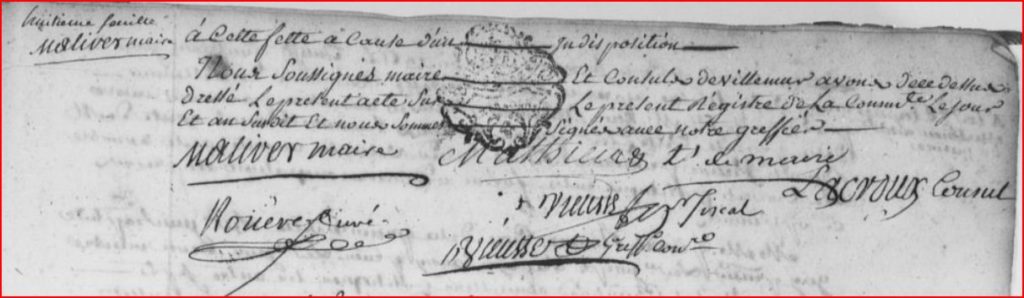 huitieme feuille
Maliver maire
à Cette fette à Cause d'un Indisposition
Nous Soussignés maire Et Consuls de villemur avons de ce dessus
dressé Le present acte Sur Le present Régistre de La Commté Le jour
Et an Susdit Et nous Sommes Signés avec notre greffier
Maliver maire
Mathieu Lt de maire
Lacroux Consul
Rouére Curé
Vieusse fiscal
Vieusse Greff. Comre